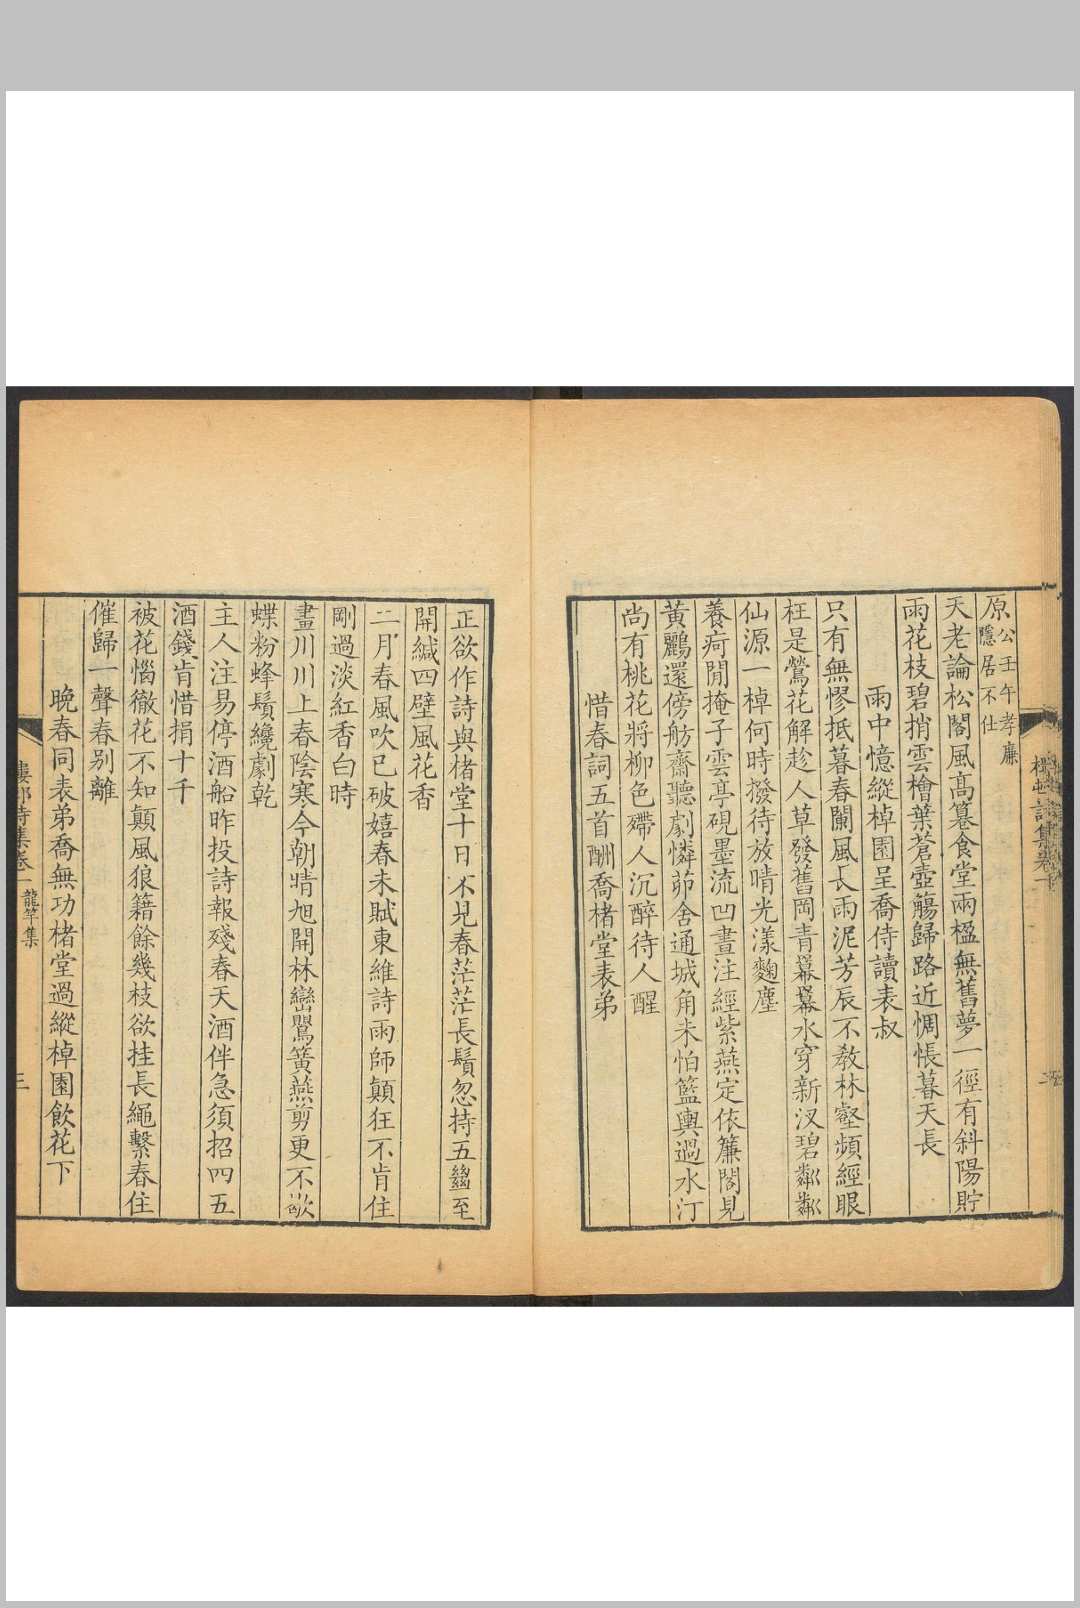 原公壬午孝廉
隱居不仕
天老論松閣風高篹食堂兩楹無舊夢一徑有斜陽貯
雨花枝碧捎雲檜葉蒼壺觴歸路近惆悵暮天長
雨中憶縱棹園呈喬侍讀表叔
只有無憀抵暮春闌風長雨泥芳辰不教林壑頻經眼
枉是鶯花解趁人草發舊岡青羃羃水穿新汊碧粼粼
仙源一棹何時撥待放晴光漾麴塵
養疴閒掩子雲亭硯墨流凹晝注經紫燕定依簾閣見
黃鸝還傍舫齋聽劇憐茆舍通城角未怕籃輿過水汀
尚有桃花將柳色殢人沉醉待人醒
惜春詞五首酬喬楮堂表弟
正欲作詩與楮堂十日不見春茫茫長鬚忽持五繇至
開緘四壁風花香
二月春風吹已破嬉春未賦東維詩雨師顛狂不肯住
剛過淡紅香白時
畫川川上春陰寒今朝晴旭開林巒鸎簧燕剪更不歇
蝶粉蜂鬚纔劇乾
主人注易停酒船昨投詩報殘春天酒伴急須招四五
酒錢肯惜捐十千
被花惱徹花不知顛風狼籍餘幾枝欲挂長繩繫春住
催歸一聲春別離
晚春同表弟喬無功楮堂過縱棹園飲花下
龍竿集
三